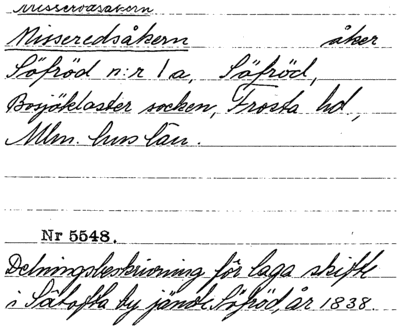 Nisseredsåkern
Nisseredsåkern åker
Söfröd n:r 1 a, Söfröd,
Bosjökloster socken, Frosta hd.,
Mlm. hus län.
Nr 5548.
Delningsbeskrivning för laga skifte
i Sätofta by jämte Söfröd, år 1838.